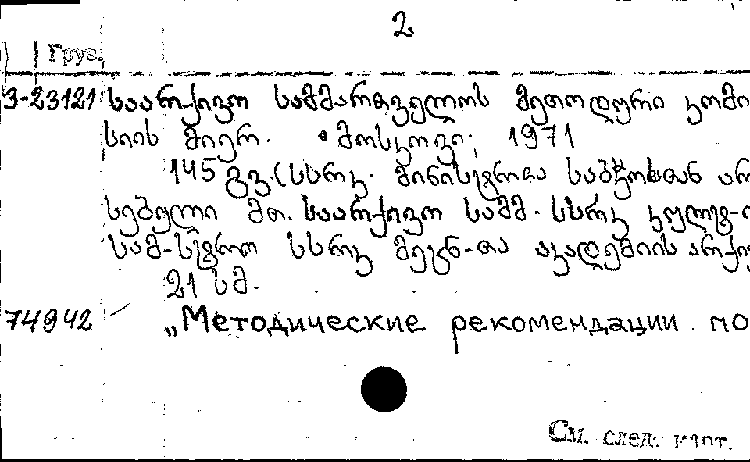 2
Груз.
3-23121 საარქივო სამმართველოს მეთოდური კომი
სიის მიერ. მოსკოვი, 1971
145 გვ. (სსრკ. მინისტრთა საბჭოსთან არ
სებული მთ. საარქივო სამმ. სსრკ კულტ-
სამ-სტრო სსრკ მეცნ-თა აკადემიის არქი
21 სმ.
74942 „Методические рекомендации по
См. след. карт.